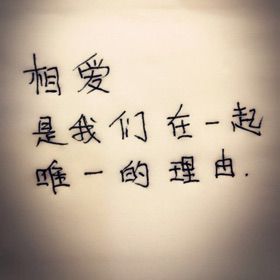 相爱
是我们在一起
唯一的理由.